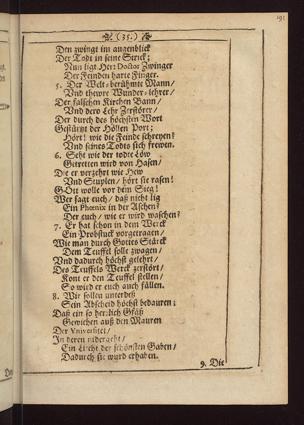 191
(35.)
Den zwingt im augenblick
Der Todt in seine Strick;
Nun ligt Herr Doctor Zwinger
Der Feinden harte Finger.
5. Der Welt-berühmte Mann/
Und thewre Wunder-lehrer/
Der falschen Kirchen Bann/
Und dero Lehr Zerstörer/
Der durch des höchsten Wort
Gestürzt der Höllen Port;
Hört! wie die Feinde schreyen?
Und seines Todts sich frewen.
6. Seht wie der todte Löw
Getretten wird von Hasen/
Die er verzehrt wie Hew
Und Stuplen/ hört sie rasen!
Gott wolle vor dem Sieg!
Wer sagt euch/ daß nicht lig
Ein Phœnix in der Aschen?
Der euch/ wie er wird waschen?
7. Er hat schon in dem Werck
Ein Probstuck vorgetragen/
Wie man durch Gottes Stärck
Dem Teuffel solle zwagen/
Und dadurch höchst gelehrt/
Des Teuffels Werck zerstört/
Kont er den Teuffel stellen/
So wird er euch auch fällen.
8. Wir sollen unterdeß
Sein Abscheid höchst bedauren;
Daß ein so herzlich Gfäß
Gewichen auß den Mauren
Der Universitet/
In deren nidergeht/
Ein Liecht der schönsten Gaben/
Dadurch sie ward erhaben.
9. Die